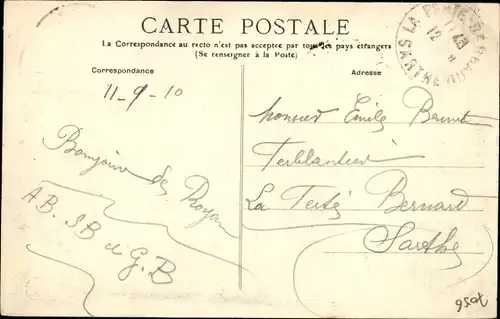 CARTE POSTALE
La Correspondance au recto n'est pas acceptée par tous les pays étrangers
(Se renseigner à la Poste)
Correspondance
Adresse
11-9-10
Bonjour de Royan
A.B. SB et G.B
Monsieur Emile Brunet
Ferblantier
La Ferté Bernard
Sarthe
LA FERTE-BERNARD
SARTHE